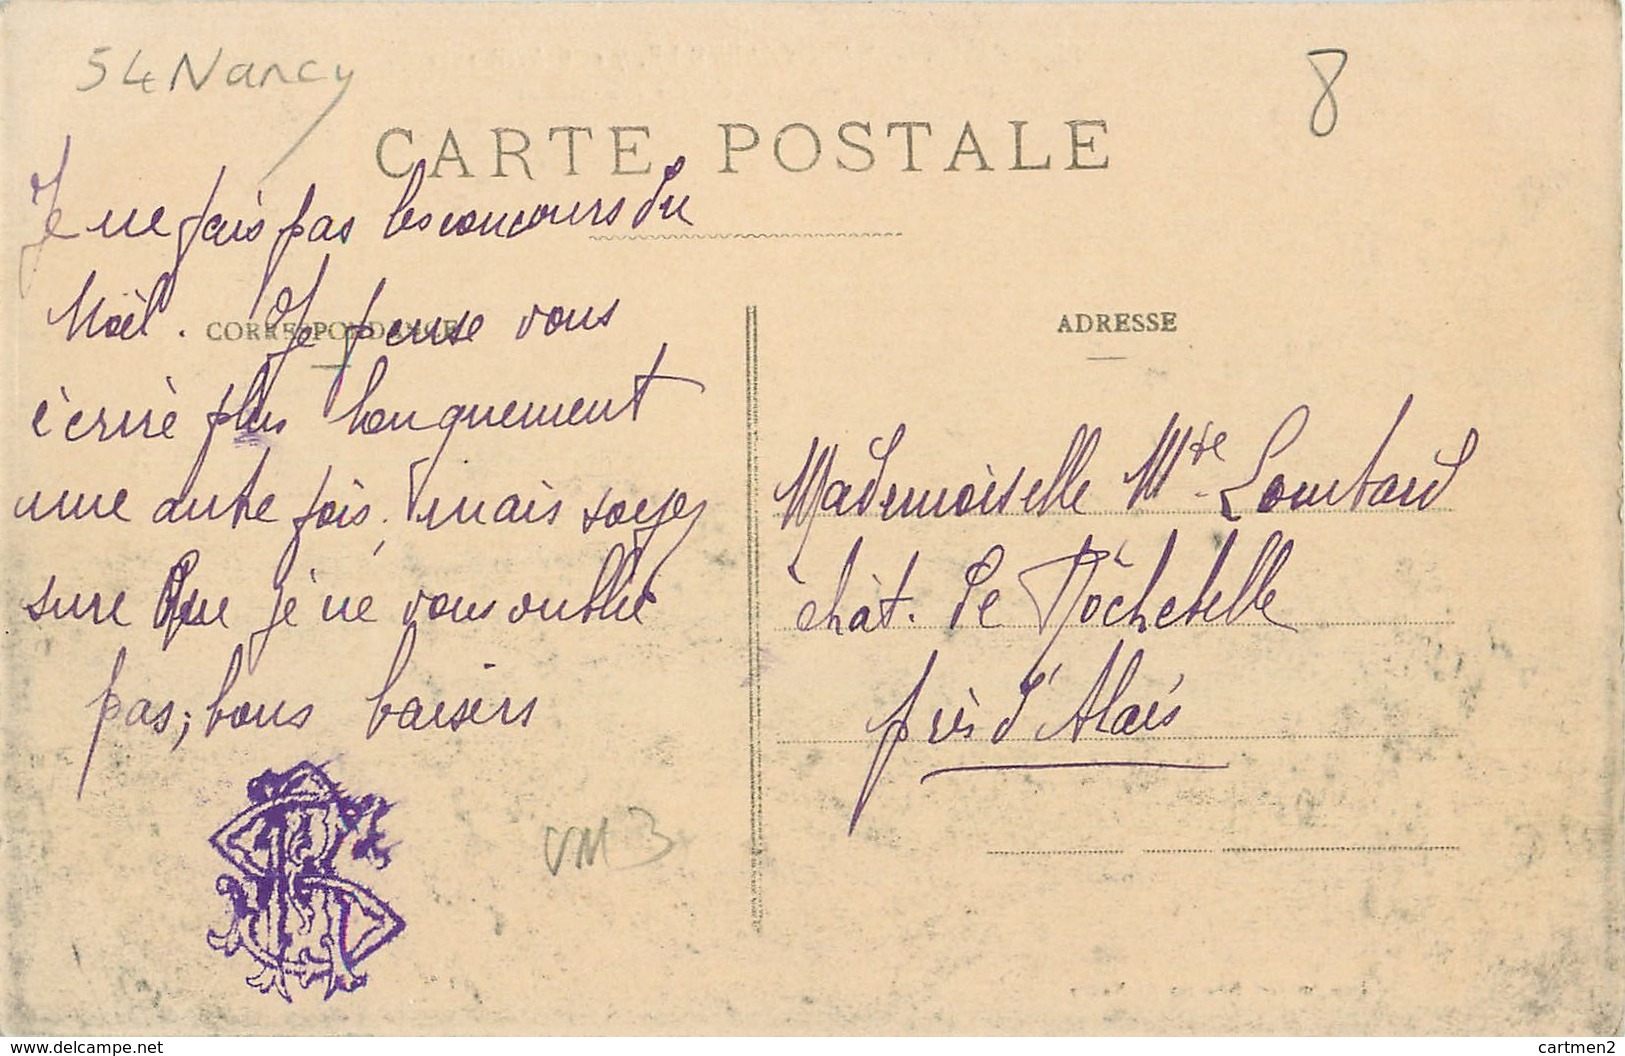 54 Nancy
8
CARTE POSTALE
Je ne fais pas les concours du
Noël. Je pense vous
écrire plus longuement
une autre fois, mais soyez
sure que je ne vous oublie
pas; bons baisers
CORRESPONDANCE
ADRESSE
Mademoiselle Mte Lombard
chât. de Rochebelle
près d'Alais
VM3
www.delcampe.net
cartmen2